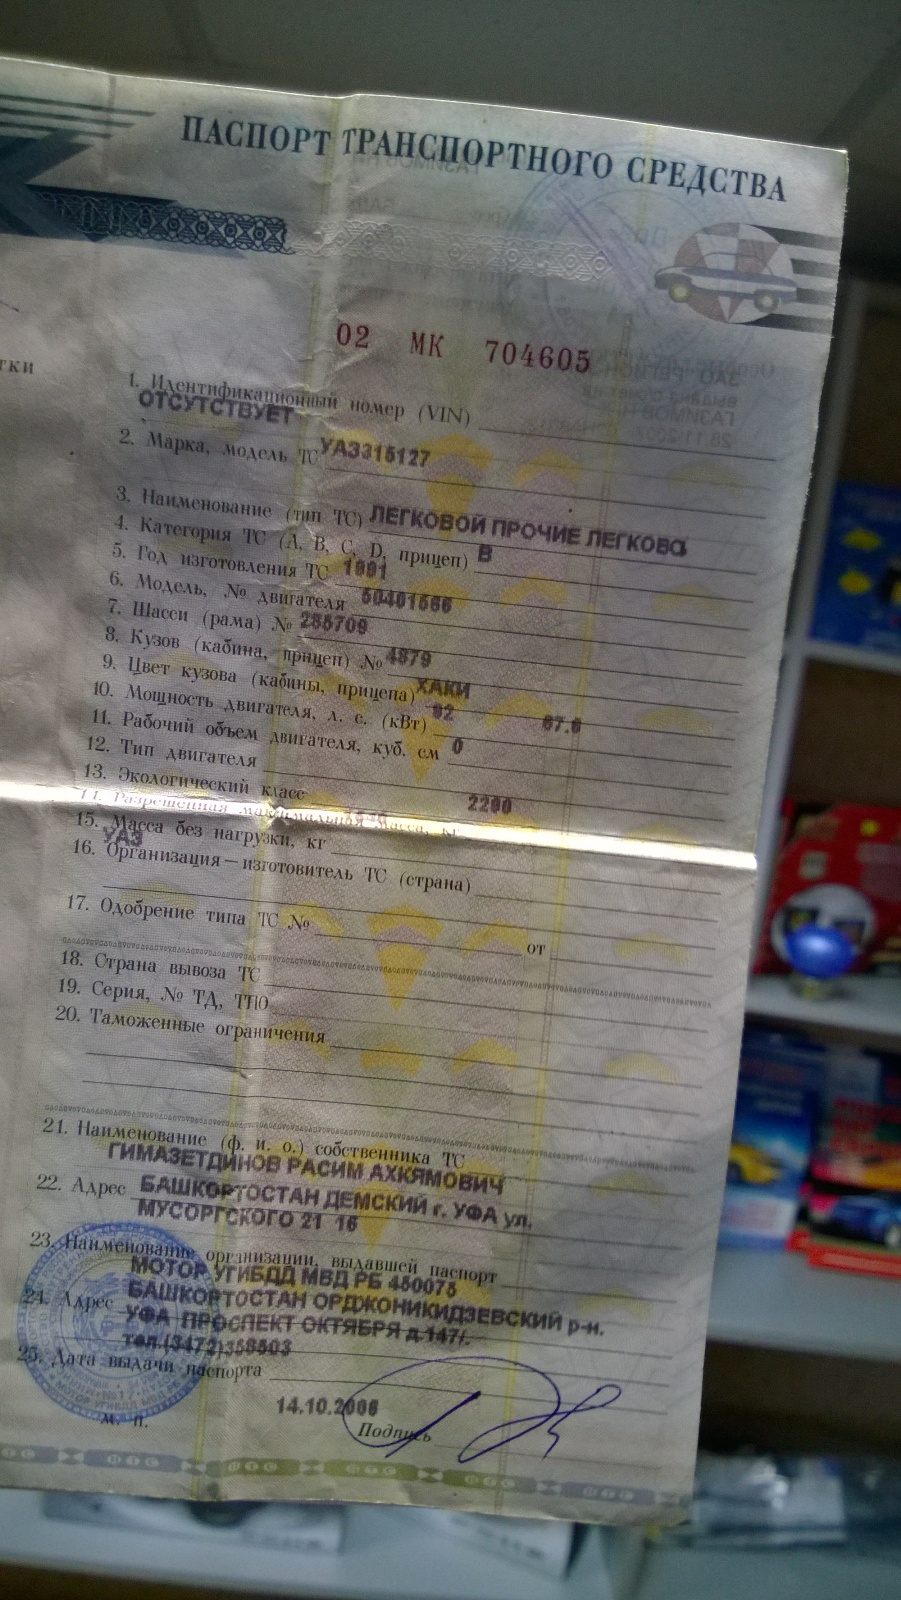 ПАСПОРТ ТРАНСПОРТНОГО СРЕДСТВА
02 МК 704605
тки
1. Идентификационный номер (VIN)
ОТСУТСТВУЕТ
2. Марка, модель ТС УАЗ315127
3. Наименование (тип ТС) ЛЕГКОВОЙ ПРОЧИЕ ЛЕГКОВО
4. Категория ТС (A, B, C, D, прицеп) В
5. Год изготовления ТС 1991
6. Модель, № двигателя 50401566
7. Шасси (рама) № 285709
8. Кузов (кабина, прицеп) № 4879
9. Цвет кузова (кабины, прицепа) ХАКИ
10. Мощность двигателя, л. с. (кВт) 92 67.6
11. Рабочий объем двигателя, куб. см 0
12. Тип двигателя
13. Экологический класс
14. Разрешенная максимальная масса, кг 2290
15. Масса без нагрузки, кг
УАЗ
16. Организация—изготовитель ТС (страна)
17. Одобрение типа ТС № от
18. Страна вывоза ТС
19. Серия, № ТД, ТПО
20. Таможенные ограничения
21. Наименование (ф. и. о.) собственника ТС
ГИМАЗЕТДИНОВ РАСИМ АХКЯМОВИЧ
22. Адрес БАШКОРТОСТАН ДЕМСКИЙ г. УФА ул.
МУСОРГСКОГО 21 16
23. Наименование организации, выдавшей паспорт
МОТОР УГИБДД МВД РБ 450075
24. Адрес БАШКОРТОСТАН ОРДЖОНИКИДЗЕВСКИЙ р-н.
УФА ПРОСПЕКТ ОКТЯБРЯ д.147/.
тел.(3472)358503
25. Дата выдачи паспорта
14.10.2006
М. П.
Подпись